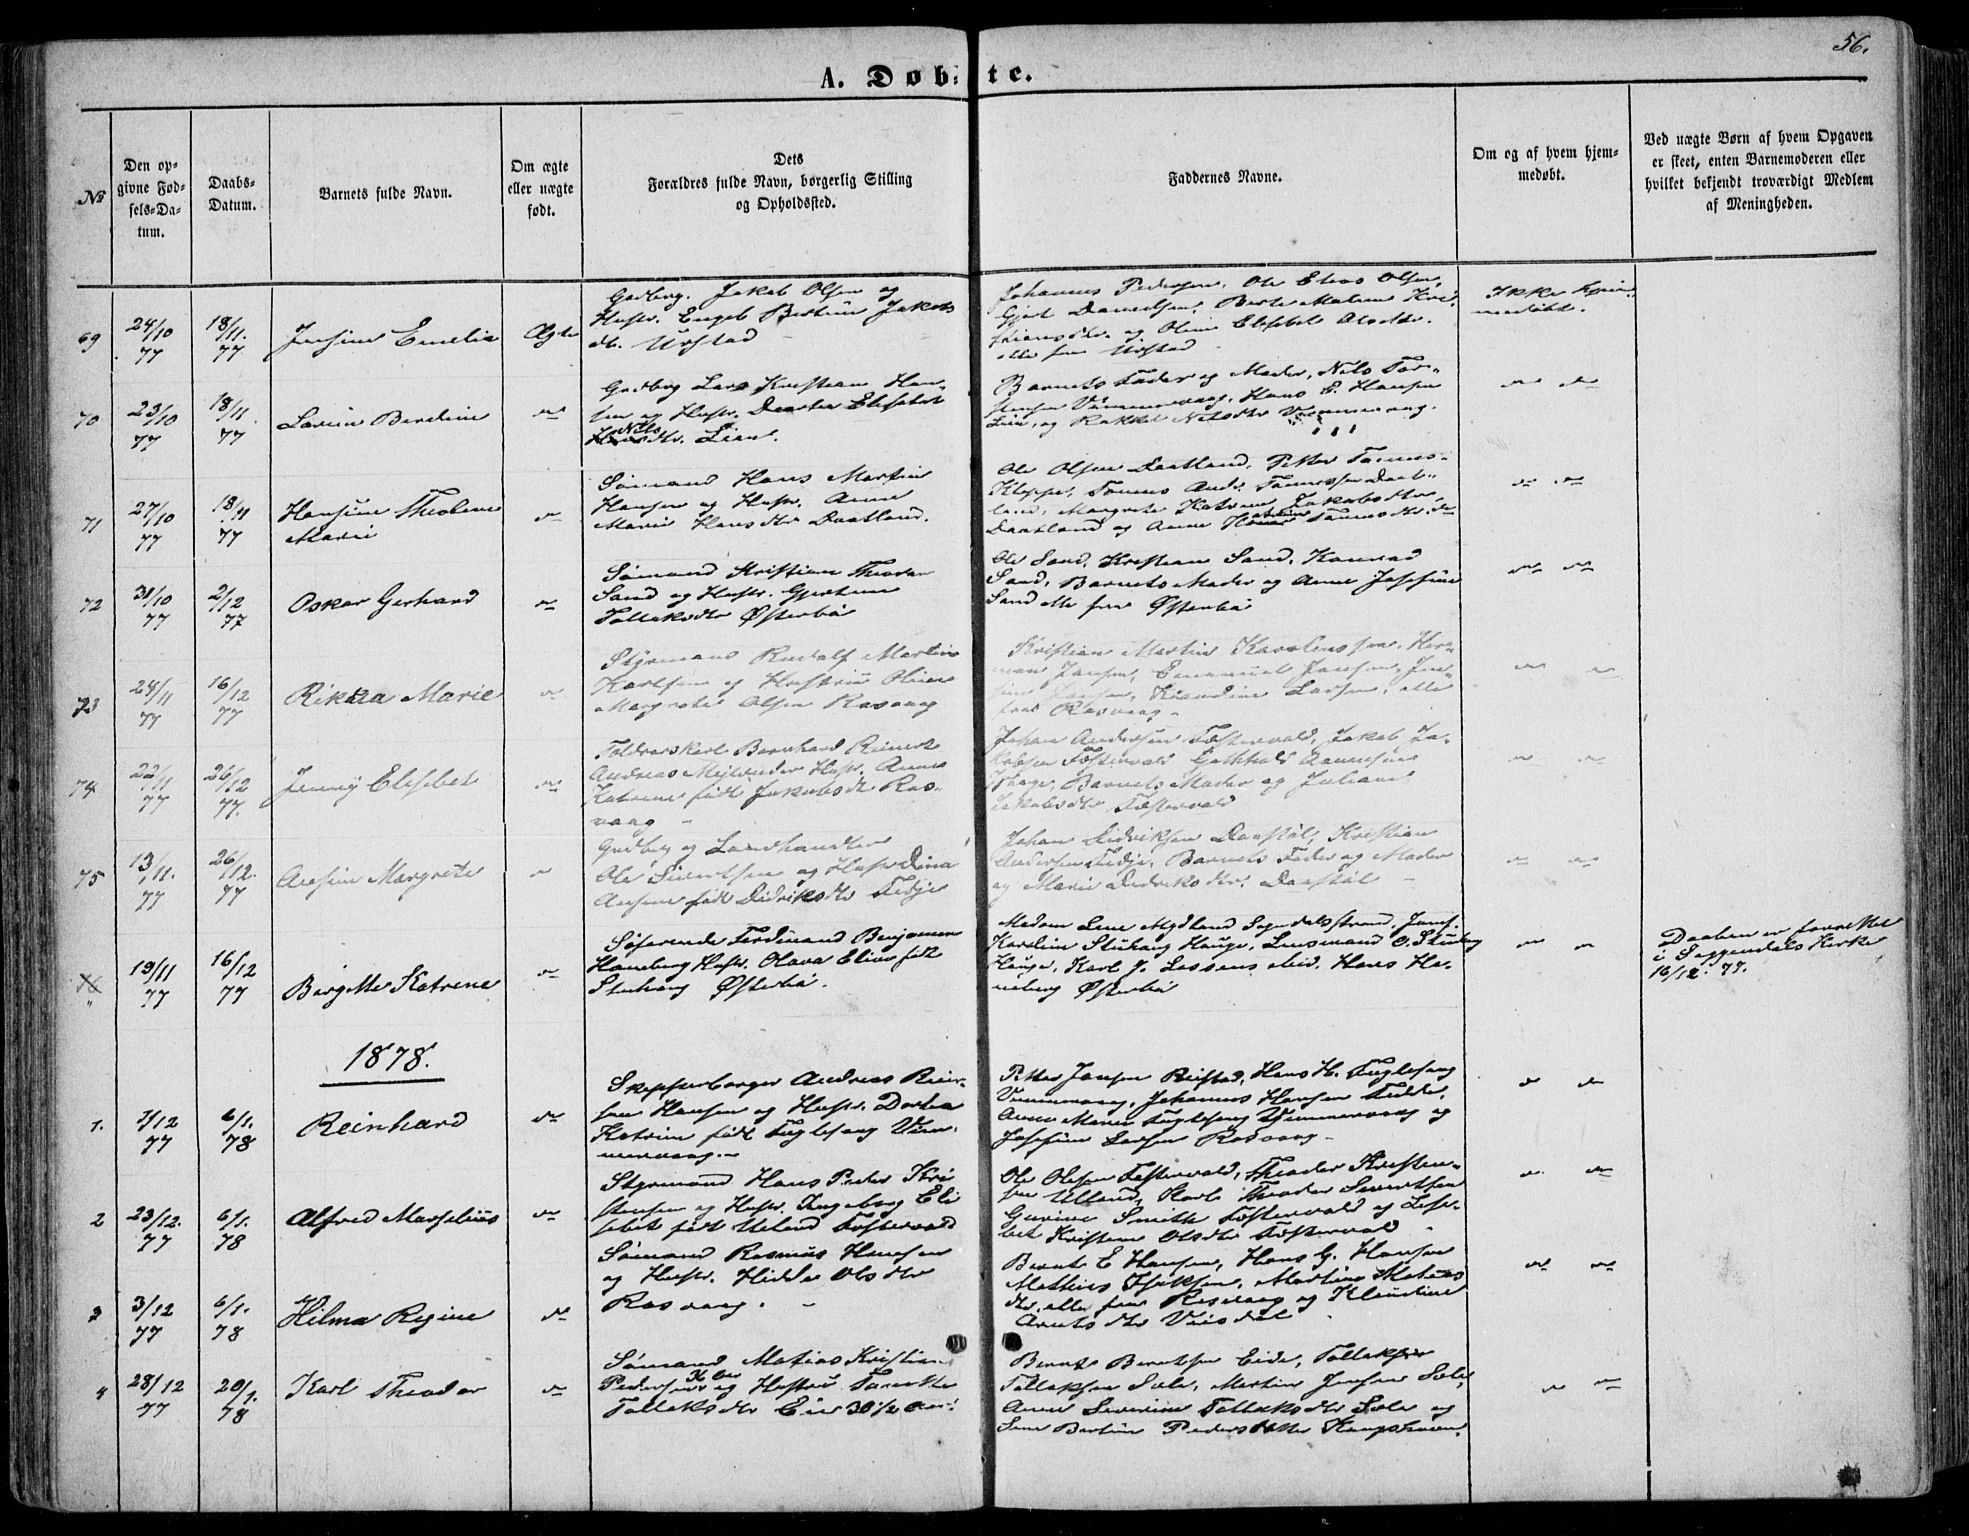 56.
A. Døb- te.
№
Den op-
givne Fød-
sels-Da-
tum.
Daabs-
Datum.
Barnets fulde Navn.
Om ægte
eller uægte
født.
Dets
Forældres fulde Navn, borgerlig Stilling
og Opholdssted.
Faddernes Navne.
Om og af hvem hjem-
medøbt.
Ved uægte Børn af hvem Opgaven
er skeet, enten Barnemoderen eller
hvilket bekjendt troværdigt Medlem
af Meningheden.
69
24/10
77
18/11.
77
Jensine Emelia
Ægte
Gadbrg. Jakob Olsen og
Hustr. Engel Bertine Jakobs
dtr. Urstad
Johannes Pedersen, Ole Elias Olsen,
Gjert Danielsen, Berte Malene Kri-
stiansdtr. og Oline Elisabet Olsdtr.
alle fra Urstad
Ikke hjem-
medøbt.
70
23/10
77
18/11
77
Larine Berdine
do
Gadbrg Lars Kristian Han-
sen og Hustr. Dorthea Elisabet
Nilsdtr. Lien.
Barnets Fader og Moder, Nils Tor-
Hans E. Hansen
Lien, og Rakkel Nilsdtr
do do
71
27/10
77
18/11
77
Hansine Theoline
Marie
do
Sømand Hans Martin
Hansen og Hustr. Anne
Marie Hansdtr Daatland.
Ole Olsen Daatland, Petter Tønnes-
Kleppe, Tønnes Andr. Tønnessen Daat-
land, Margrete Katrine Jakobsdtr
Daatland og Anne Tønnesdtr. do
do do
72
31/10
77
2/12
77
Oskar Gerhard
do
Sømand Kristian Theodor
Sand og Hustr. Gjertine
Tollaksdtr Østerbø
Ole Sand, Kristian Sand, Konrad
Sand, Barnets Moder og Anne Josefine
Sand alle fra Østerbø
do do
73
24/11
77
16/12
77
Rikka Marie
do
Styrmand Rudolf Martin
Karlsen og Hustru Oline
Margrete Olsen Rasvaag
Kristian Martin Karolussen, Her-
man Jansen, Emanuel Jansen, Jen-
sine Jansen, Klaudine Larsen, alle
fra Rasvaag
do do
74
22/11
77
26/12
77.
Jenny Elisabet
do
Toldvorskarl Bernhard Reinert
Andreas Mejlænder Hustr. Anne
Katrine født Jakobsdtr Ras-
vaag
Johan Andersen Fostervold, Jakob Ja-
kobsen Fostervold
Hauge, Barnets Moder og Juliane
Jakobsdtr Fostervold
do do
75
13/11.
77
26/12.
77
Ansine Margrete
do
Gadbrg og Landhandler
Ole Sivertsen og Hustr Dina
Ansine født Didriksdtr Fedje
Johan Didriksen Daastøl, Kristian
Andersen Fedje, Barnets Fader og Moder
og Marie Didriksdtr. Daastøl
do do
"
19/11
77
16/12
77
Birgitte Katrine
do
Søfarende Ferdinand Benjamin
Haneberg Hustr. Olava Elise født
Stuhaug Østerbø.
Madam Lene Mydland Sogndalsstrand, Jomf.
Karoline Stuhaug Hauge, Lensmand O. Stuhaug
Hauge, Karl J. Lassens ibid. Hans Ha-
neberg Østerbø
do do
Daaben er forrettet
i Soggendals Kirke
16/12. 77.
1878.
1.
7/12
77
6/1.
78
Reinhard
do
Skipperborger Andreas Rein-
Hansen og Hustr. Dortea
Katrine født Fuglesang Vem-
mervaag.
Petter Jansen Reistad, Hans H. Fuglesang
Vemmervaag, Johannes Hansen
Anne Marie Fuglesang Vemmervaag og
Josefine Larsen Rasvaag
do do
2
23/12.
77
6/1.
78
Alfred Marselius
do
Styrmand Hans Peder Kri
stensen og Hustr. Ingeborg Eli
sabet født Ueland Fostervold
Ole Olsen Fostervold, Theodor Kristen-
sen Ulland, Karl Theodor Sivertsen
Gurine Smith Fostervold og Lise-
bet Kristine Olsdtr Fostervold
do do
3
3/12
77
6/1.
78
Hilma Regine
do
Sømand Rasmus Hansen
og Hustr. Olsdtr
Rasvaag.
Bernt E Hansen, Hans G. Hansen
Mathias Martine Matias
dtr. alle fra Rasvaag og Klaudine
do do
4
28/12
77
20/1.
78
Karl Theodor
do
Sømand Matias Kristian
Pedersen og Hustru
Tollaksdtr Eie 30 1/2 Aar.
Bernt Berntsen Eide,
Tollaksen Sele, Martin Jensen Sele,
Anne Severine Tollaksdtr Sele og
Lene Bertine Pedersdatter
do do